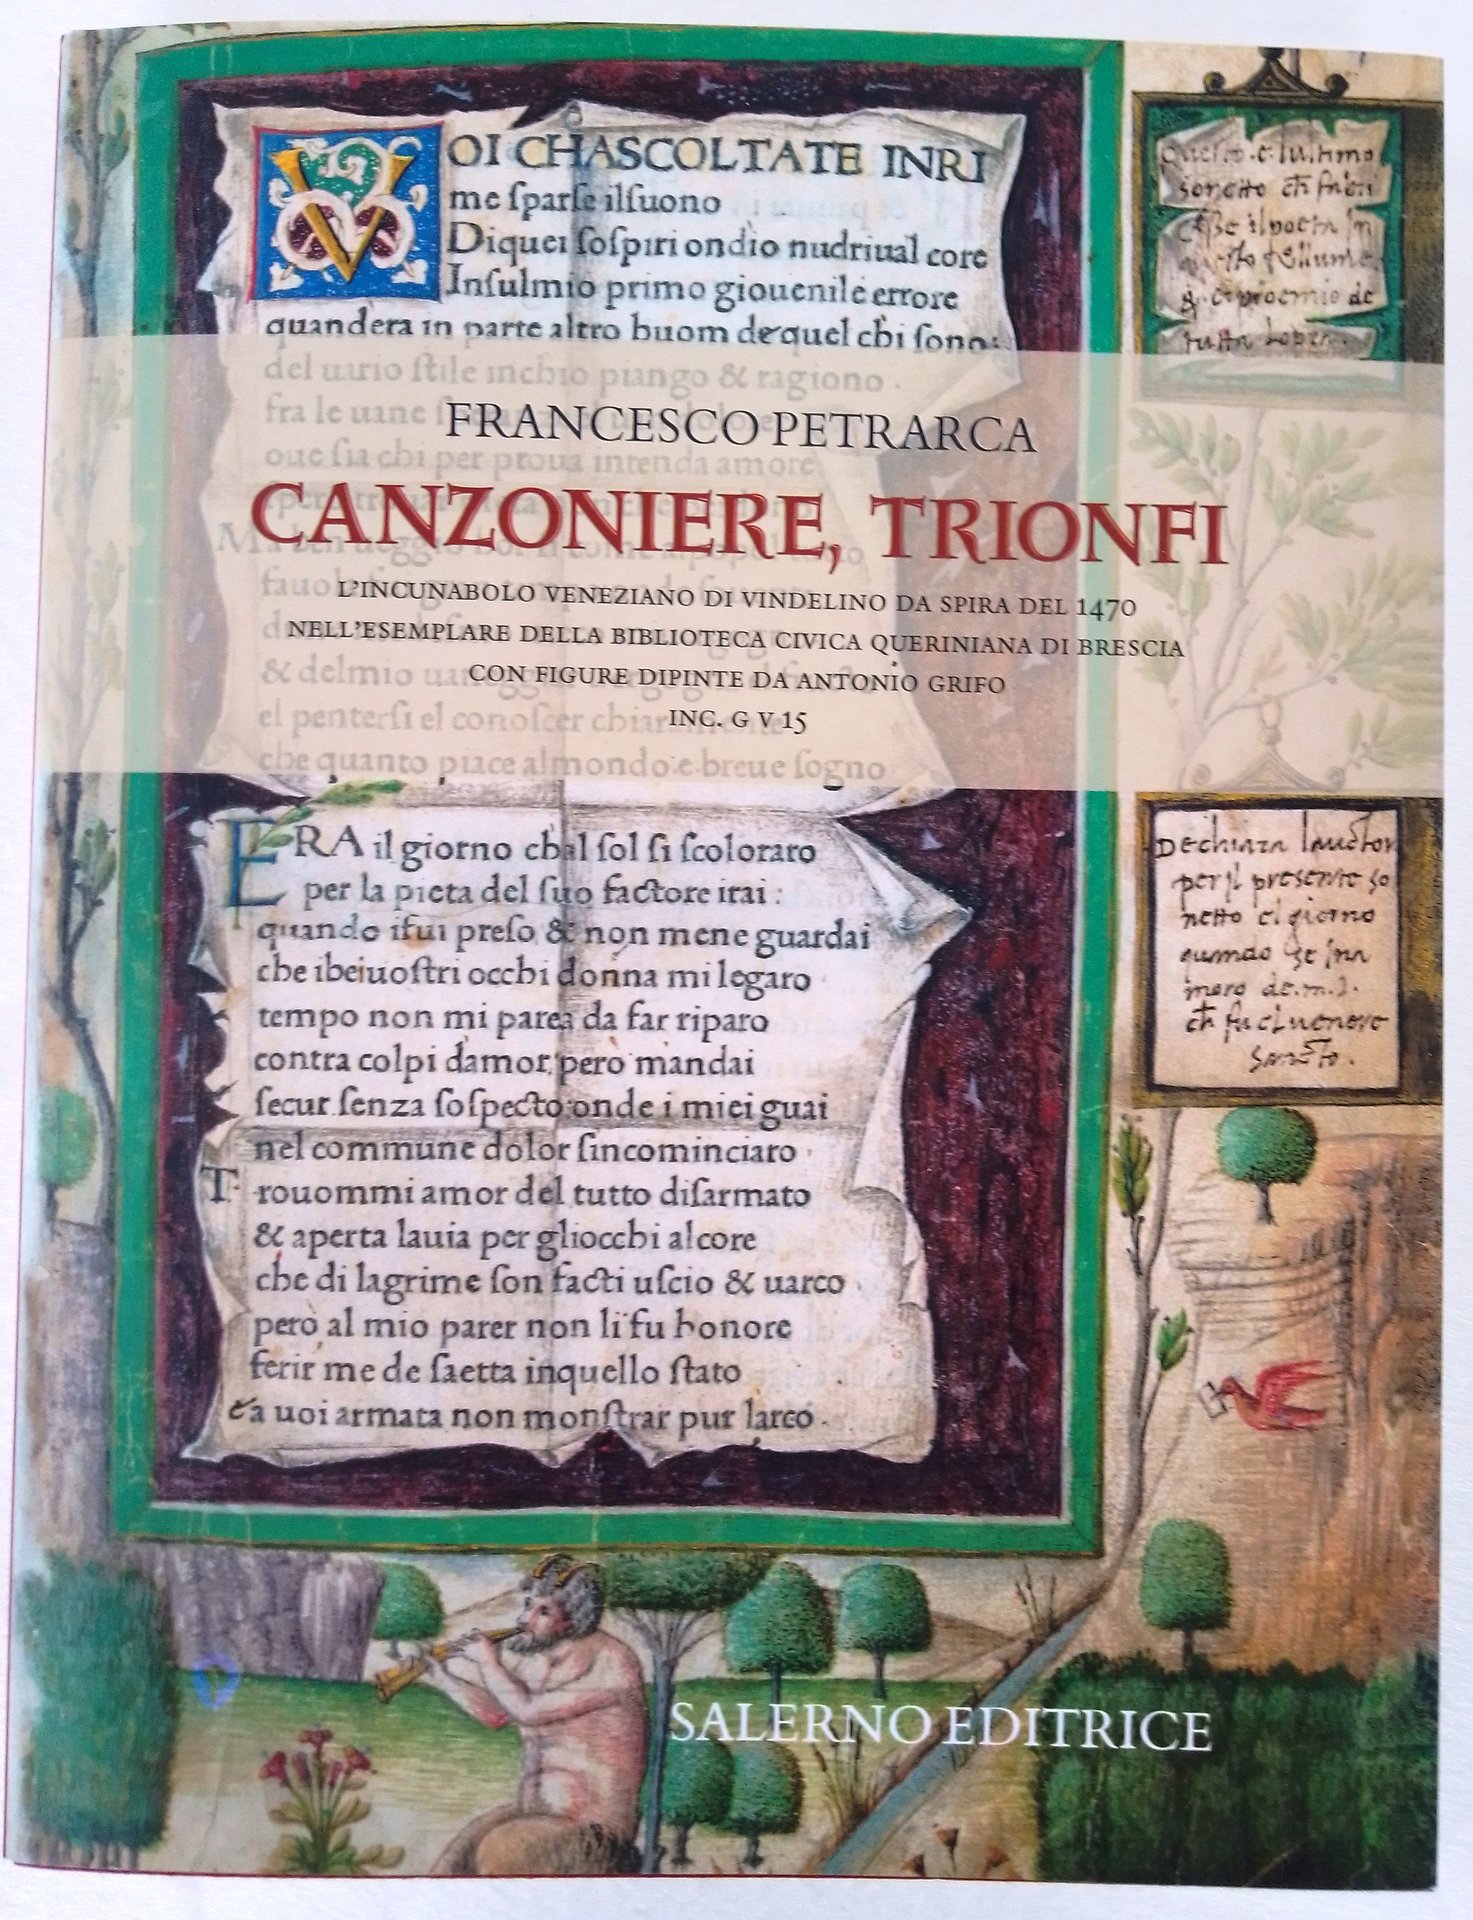 VOI CHASCOLTATE INRI
me sparse ilsuono
Diquei sospiri ondio nudriual core
Insulmio primo giouenile errore
quandera in parte altro huom dequel chi sono
del uario stile inchio piango & ragiono
fra le uane
oue sia chi per proua intenda amore
Ma ben
fauola
& delmio
el pentersi el conoscer chiaramente
che quanto piace almondo e breue sogno
FRANCESCO PETRARCA
CANZONIERE, TRIONFI
L'INCUNABOLO VENEZIANO DI VINDELINO DA SPIRA DEL 1470
NELL'ESEMPLARE DELLA BIBLIOTECA CIVICA QUERINIANA DI BRESCIA
CON FIGURE DIPINTE DA ANTONIO GRIFO
INC. G V 15
ERA il giorno chal sol si scoloraro
per la pieta del suo factore irai :
quando ifui preso & non mene guardai
che ibeiuostri occhi donna mi legaro
tempo non mi parea da far riparo
contra colpi damor però mandai
secur senza sospecto onde i miei guai
nel commune dolor sincominciaro
Trouommi amor del tutto disarmato
& aperta lauia per gliocchi alcore
che di lagrime son facti uscio & uarco
però al mio parer non li fu honore
ferir me de saetta inquello stato
& a uoi armata non monstrar pur larco
Questo e lultimo
sonetto
il poeta in
questo
& e proemio de
tutta lopra.
Dechiara lauctor
per il presente so
netto el giorno
quando se ina
moro de .m. l.
ch fu el uenere
sancto.
SALERNO EDITRICE